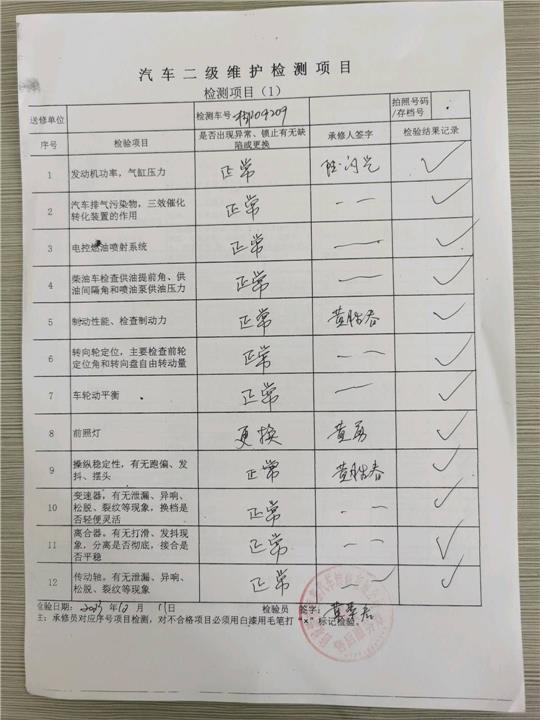 汽车二级维护检测项目
检测项目（1）
送修单位 检测车号 拍照号码/存档号
序号 检验项目 是否出现异常、锁止有无缺陷或更换 承修人签字 检验结果记录
1 发动机功率，气缸压力 正常 ✓
2 汽车排气污染物，三效催化转化装置的作用 正常 — — ✓
3 电控燃油喷射系统 正常 — — ✓
4 柴油车检查供油提前角、供油间隔角和喷油泵供油压力 正常 — — ✓
5 制动性能、检查制动力 正常 ✓
6 转向轮定位，主要检查前轮定位角和转向盘自由转动量 正常 — — ✓
7 车轮动平衡 正常 — — ✓
8 前照灯 更换 黄勇 ✓
9 操纵稳定性，有无跑偏、发抖、摆头 正常 ✓
10 变速器，有无泄漏、异响、松脱、裂纹等现象，换档是否轻便灵活 正常 — — ✓
11 离合器，有无打滑、发抖现象，分离是否彻底，接合是否平稳 正常 — — ✓
12 传动轴，有无泄漏、异响、松脱、裂纹等现象 正常 — — ✓
检验日期：年 月 日 检验员 签字：
注：承修员对应序号项目检测，对不合格项目必须用白漆用毛笔打“×”标记检验。